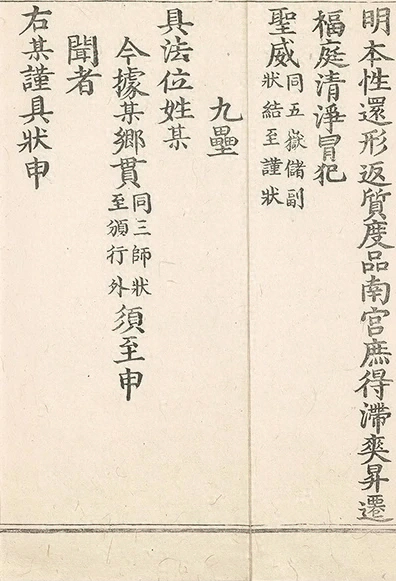 明本性還形返質度品南宮庶得滯爽昇遷
福庭清淨冒犯
聖威同五嶽儲副狀結至謹狀
九壘
具法位姓某
今據某鄉貫同三師狀至頒行外須至申
聞者
右某謹具狀申